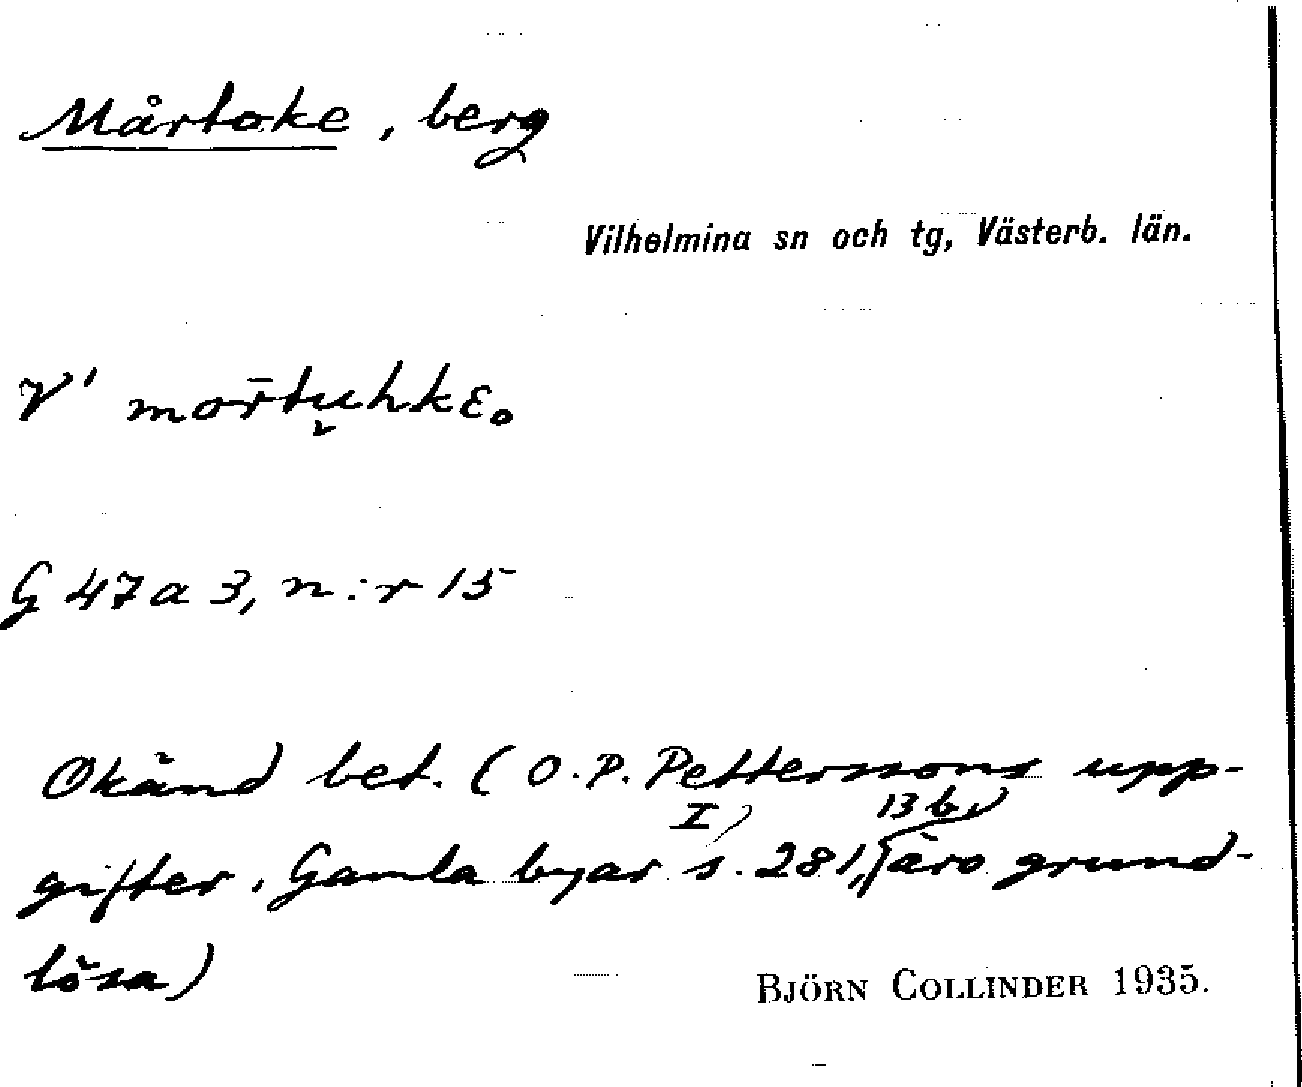 Mårtoke, berg
Vilhelmina sn och tg, Västerb. län.
V' mor̄tu̬hkɛ̥
G 47a 3, n:r 15
Okänd bet. (O.P. Petterssons upp-
gifter, Gamla byar I, s. 281, 13 b, äro grund-
lösa)
BJÖRN COLLINDER 1935.